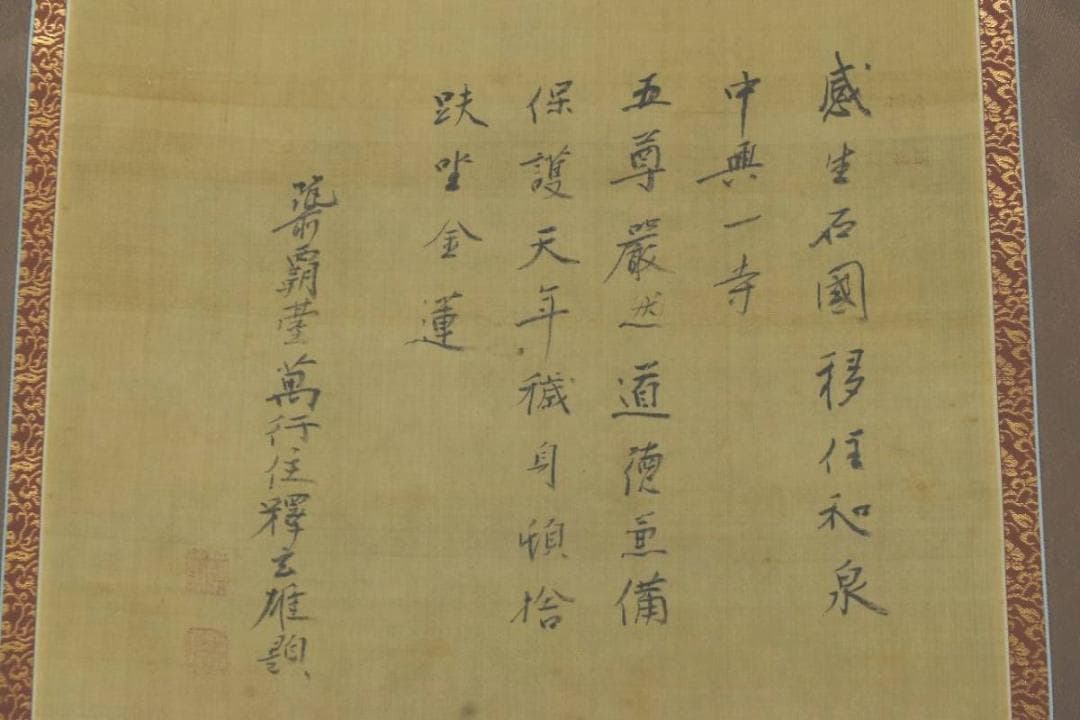 感生石國移住和泉
中興一寺
五尊嚴然道德兼備
保護天年穢身頓捨
趺坐金蓮
霸臺萬行住釋玄雄題